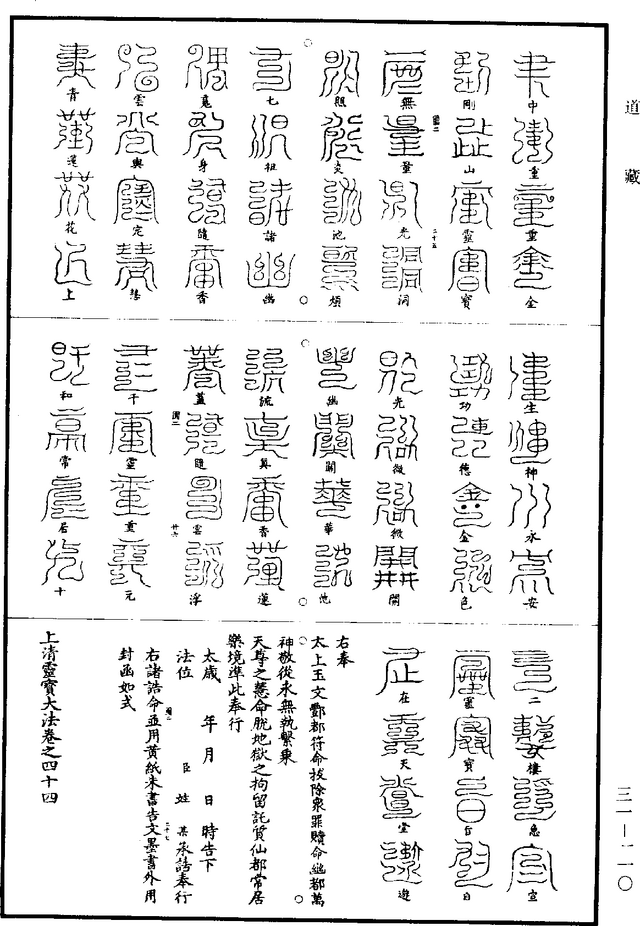 道藏
中重重金
剛山靈寶
無量光洞
照池煩
七祖諸幽
身隨香
雲輿定慧
青蓮花上
生神永安
功德金色
光微微開
幽關華池
流真香蓮
蓋隨雲浮
千靈重元
和常居十
二樓急宣
靈寶告
在天堂遊
右奉
太上玉文酆都符命拔除衆罪贖命幽都萬
神敬從永無執繫東
天尊之慧命脫地獄之拘留託質仙都常居
樂境準此奉行
太歲 年 月 日 時告下
法位 臣 姓 某承誥奉行
右諸誥命並用黃紙朱書告文墨書外用
封函如式
上清靈寶大法卷之四十四
三一—二一〇